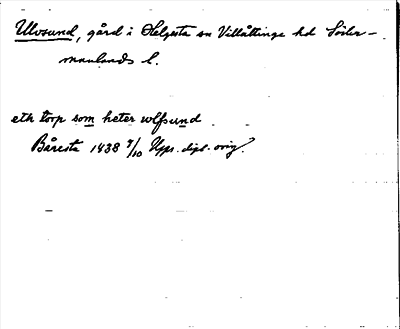 Ulvsund, gård i Helgesta sn Villåttinge hd Söder-
manlands l.
eth torp som heter wlfsund
Båresta 1438 7/10 Upps. dipl. orig.